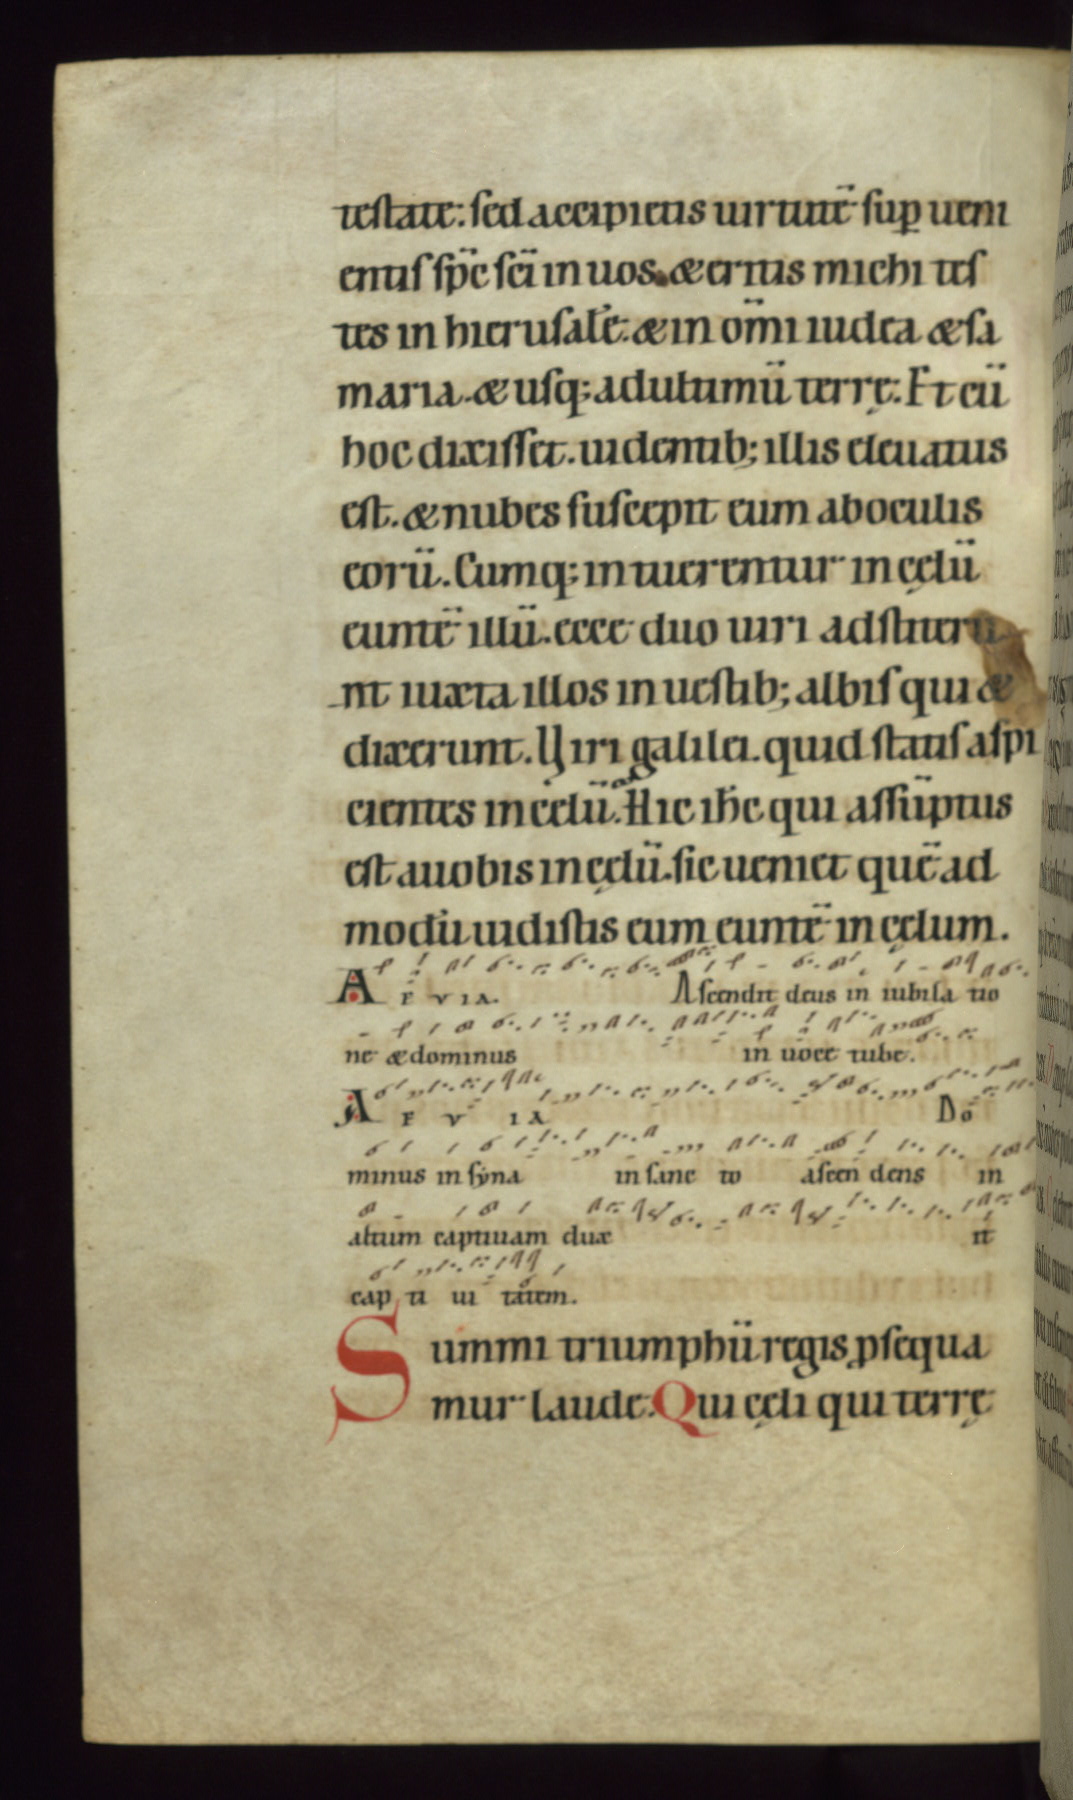 testate: sed accipietis uirtutē sup̄ ueni
entis sp̄c sc̄i in uos. & eritis michi tes
tes in hierusalē. & in om̄i iudea & sa
maria. & usq; ad ultimū terrę: Et cū
hoc dixisset. uidentib; illis eleuatus
est. & nubes suscepit eum ab oculis
eorū. Cumq; intuerentur in cęlū
euntē illū. ecce duo uiri adstiteru
nt iuxta illos in uestib; albis qui &
dixerunt. Viri galilei. quid statis aspi
cientes in cęlū. Hic ih̄c qui assūptus
est a uobis in cęlū. sic ueniet quē ad
modū uidistis eum euntē in cęlum.
A E V IA. Ascendit deus in iubila tio
ne & dominus in uoce tube.
A E V IA Do
minus in syna in sanc to ascen dens in
altum captiuam dux it
cap ti ui tatem.
Summi triumphū regis p̄sequa
mur laude. Qui cęli qui terrę